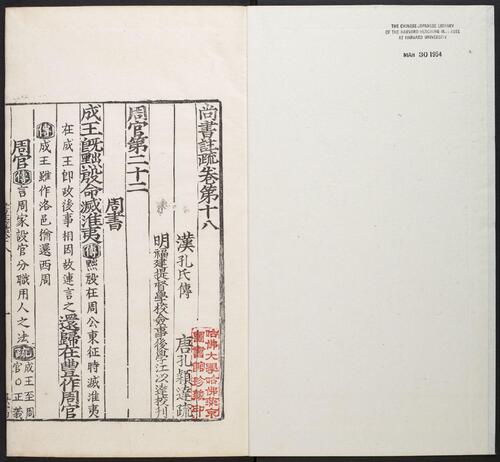 尚書註疏卷第十八
漢孔氏傳
唐孔穎達疏
明福建提督學校僉事後學江以達校刊
周官第二十二
周書
成王既黜殷命滅淮夷傳黜殷在周公東征時滅淮夷
在成王即政後事相因故連言之還歸在豐作周官
傳成王雖作洛邑猶還西周
周官傳言周家設官分職用人之法疏成王至周
官○正義
哈佛大學哈佛燕京
圖書館珍藏印
THE CHINESE-JAPANESE LIBRARY
OF THE HARVARD-YENCHING
AT HARVARD UNIVERSITY
MAR 30 1954